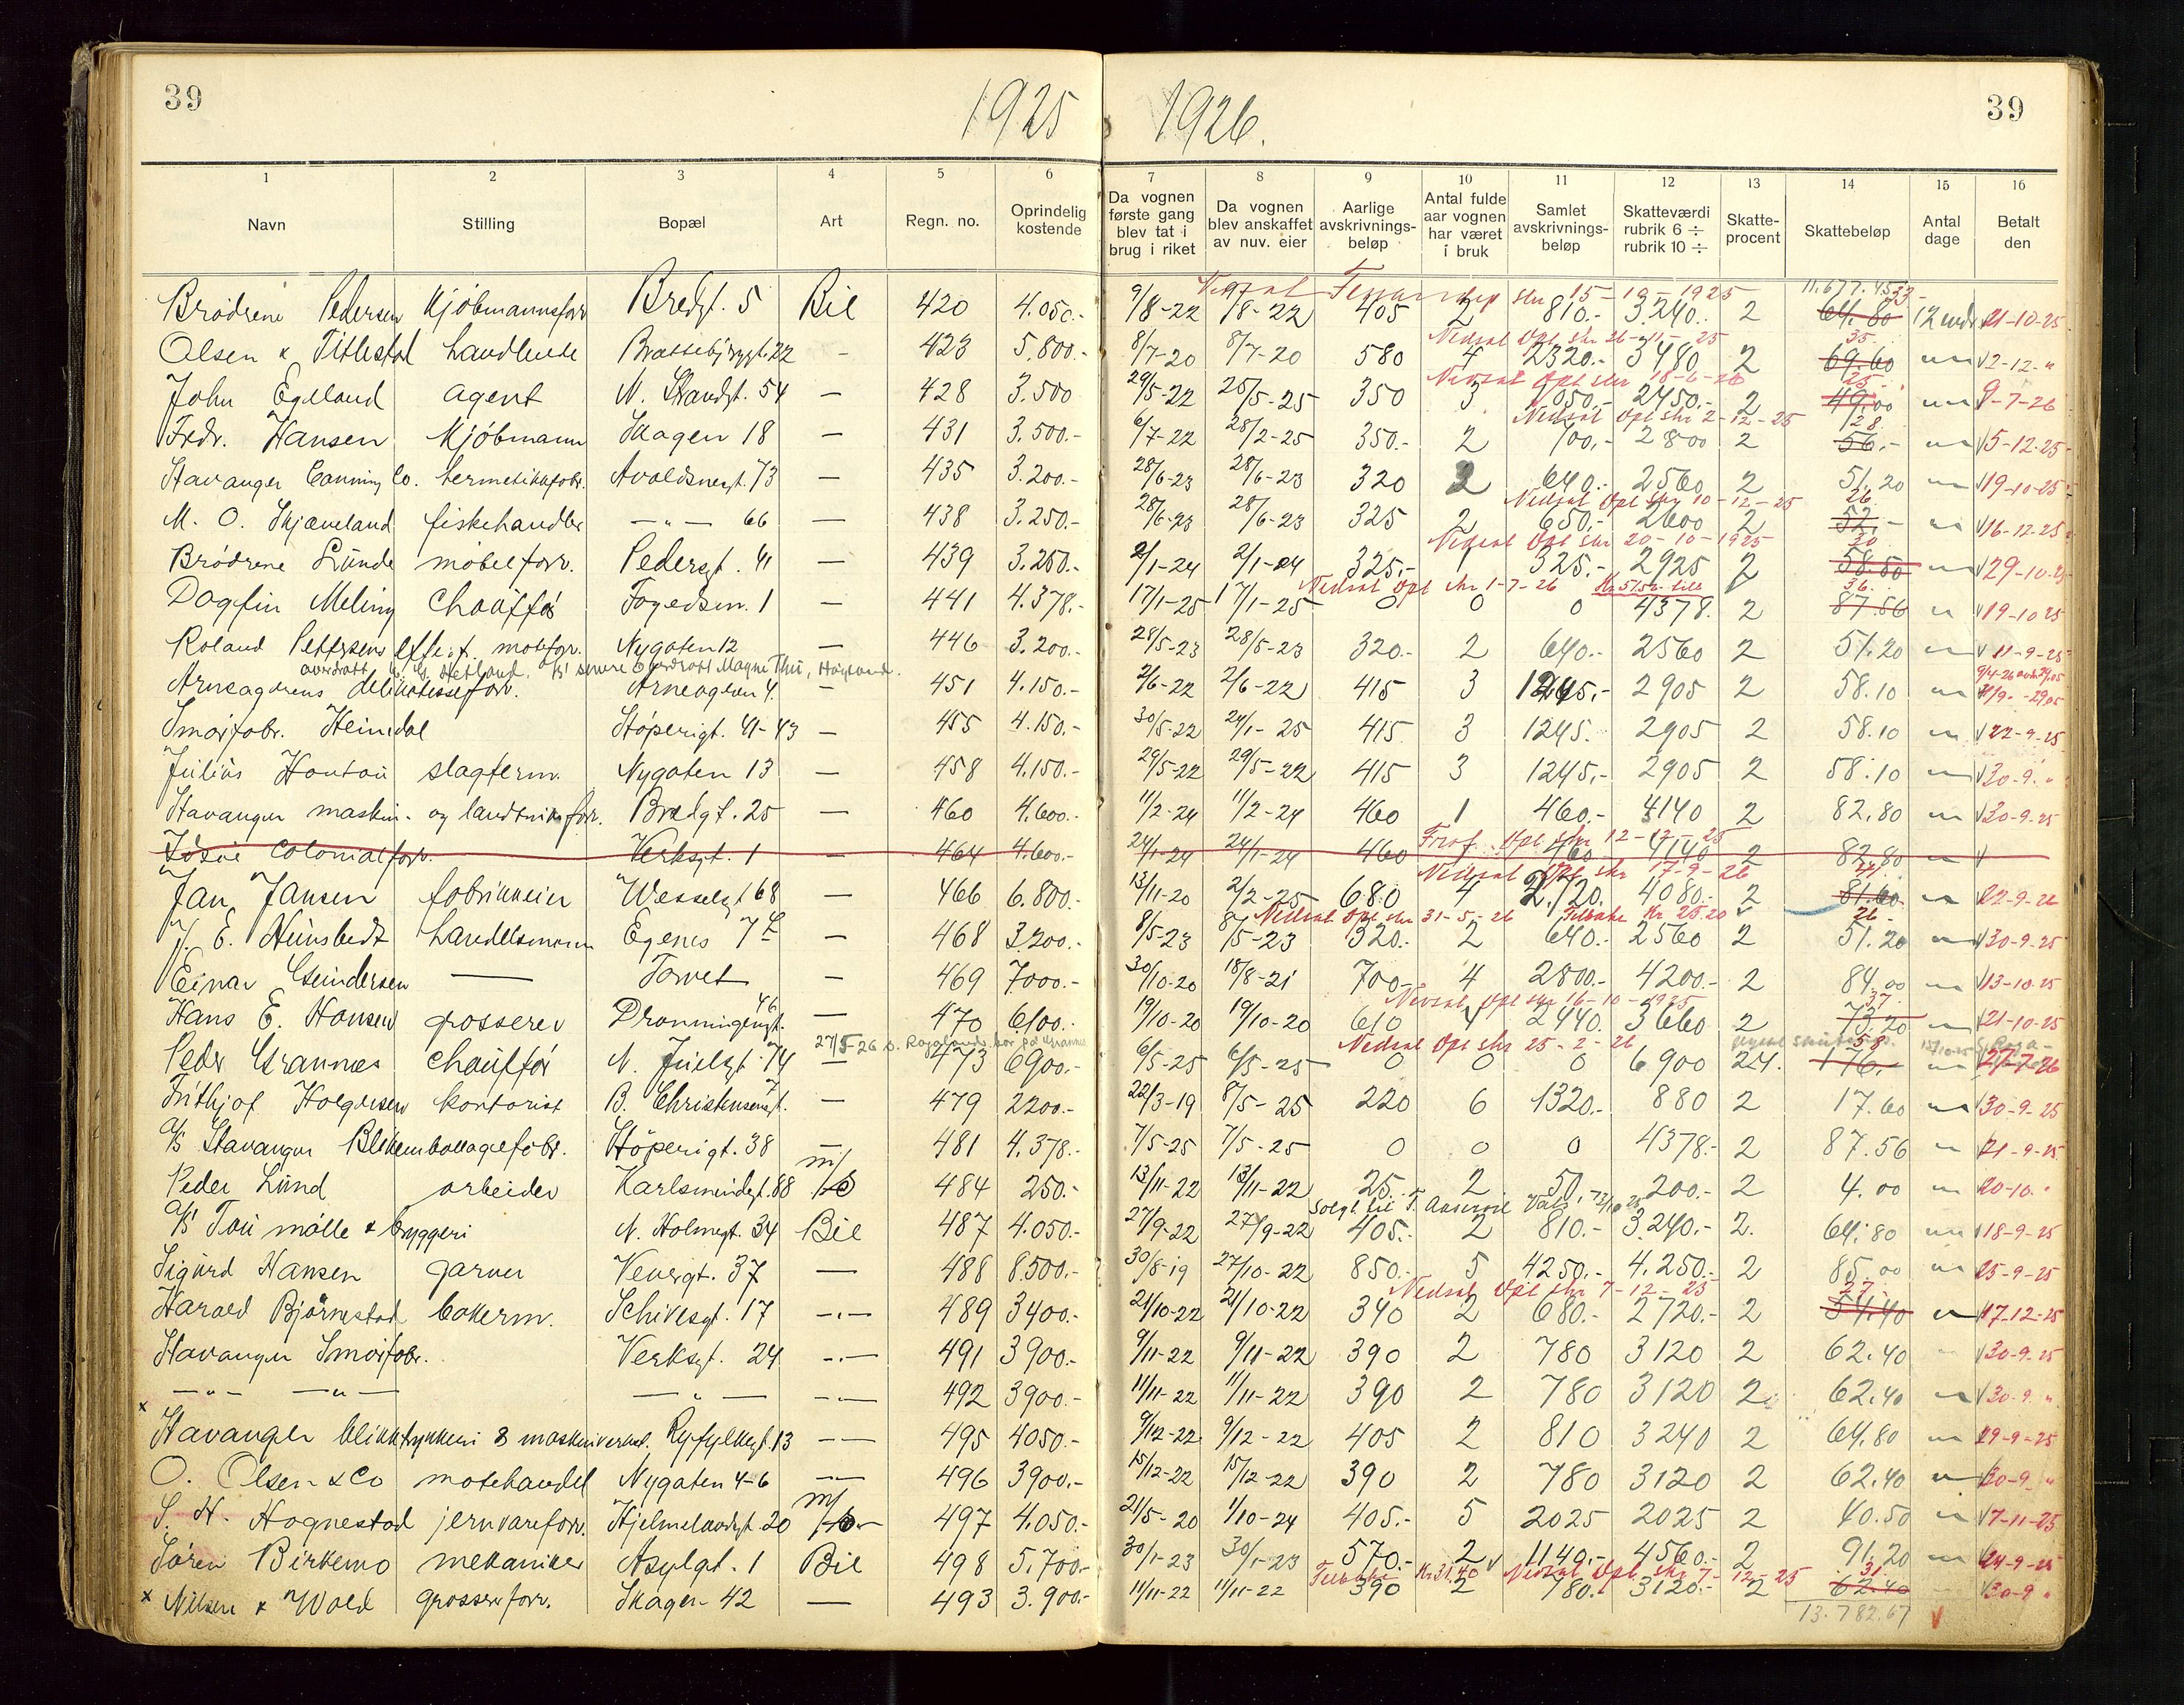 39
1925
1926.
39
1 2 3 4 5 6 7 8 9 10 11 12 13 14 15 16
Navn Stilling Bopæl Art Regn. no. Oprindelig kostende Da vognen første gang blev tat i brug i riket Da vognen blev anskaffet av nuv. eier Aarlige avskrivnings- beløp Antal fulde aar vognen har været i bruk Samlet avskrivnings- beløp Skatteværdi rubrik 6 ÷ rubrik 10 ÷ Skatte- procent Skattebeløp Antal dage Betalt den
11.677.45
Nedsat skr 15-19-1925 33-
Brødrene Pedersen Kjøbmannsforr Bredgt. 5 Bil 420 4.050.- 9/8-22 9/8-22 405 2 810.- 3.240.- 2 64.80 12 mdr 21-10-25
Nedsat Opl skr 26-11-25 35-
Olsen & Titlestad handlende 22 - 423 5.800.- 8/7-20 8/7-20 580 4 2320.- 3480 2 69.60 2-12-"
Nedsat Opl skr 18-6-26 25-
John Egeland agent N. Strandgt. 54 — 428 3.500 29/5-22 25/5-25 350 3 1050.- 2450.- 2 49.00 9-7-26
Nedsat Opl skr 2-12-25 128.
Fredr. Hansen Kjøbmann Skagen 18 — 431 3.500.- 6/7-22 28/2-25 350.- 2 700.- 2800 2 56.- 5-12-25
Stavanger Canning Co. hermetikkfabr. Avaldsnesgt. 73 — 435 3.200.- 28/6-23 28/6-23 320 2 640.- 2560 2 51.20 19-10-25
Nedsat Opl skr 10-12-25 26
M. O. Skjæveland fiskehandler —"— 66 — 438 3.250.- 28/6-23 28/6-23 325 2 650.- 2600 2 52.- 16-12-25
Nedsat Opl skr 20-10-1925 30
Brødrene Lunde møbelforr. Pedersgt. 41 — 439 3.250.- 2/1-24 2/1-24 325.- 1 325.- 2925 2 58.50 29-10-25
Nedsat Opl skr 1-7-26 Kr 51.56 36.
Dagfin Meling Chauffør Fogedsm. 1 — 441 4.378.- 17/1-25 17/1-25 0 0 0 4378. 2 87.56 19-10 25
Roland Pettersens eftf. motefor. Nygaten 12 — 446 3.200.- 28/5-23 28/5-23 320.- 2 640.- 2560 2 51.20 11-9-25
overdratt Hetland. senere overdratt Magne Thu, Høyland.
Arneagerens delikatesseforr. Arneageren 4. - 451 4.150.- 2/6-22 2/6-22 415 3 1245.- 2905 2 58.10
Smørfabr. Heimdal Støperigt. 41-43 — 455 4.150.- 30/5-22 24/1-25 415 3 1245. 2905 2 58.10 22-9-25
Julius Houtou slagterm. Nygaten 13 — 458 4.150.- 29/5-22 29/5-22 415 3 1245.- 2905 2 58.10 30-9-"
Stavanger maskin- og landbruksforr. Bredgt. 25 460 4.600.- 11/2-24 11/2-24 460 1 460.- 4140 2 82.80 30-9-25
Opl skr 12-12-25
colonialforr. Verksgt. 1 - 464 4.600.- 24/1-24 24/1-24 460 460 4140 2 82.80
Nedsat Opl skr 17-9-26 41.
Jan Jansen fabrikkeier Wesselsgt 68 — 466 6.800.- 13/11-20 2/2-25 680 4 2.720. 4080.- 2 81.60 22-9-26
Nedsat Opl skr 31-5-26 Tilbake Kr 25.20 26-
J. E. Heimstedt handelsmann Egenes 7 — 468 3.200.- 8/5-23 8/5-23 320.- 2 640.- 2560 2 51.20 30-9-25
Einar Gundersen — Torvet — 469 7.000.- 30/10-20 18/8-21 700.- 4 2800.- 4200.- 2 84.00 13-10-25
Nedsat Opl skr 16-10-1925 37.
Hans E. Hansen grosserer Dronningensgt. 46 — 470 6100.- 19/10-20 19/10-20 610 4 2440. 3660 2 73.20 21-10-25
27/5-26 Nedsat Opl skr 25-2-26 58
Peder Grannes chauffør N. Juelsgt. 74 — 473 6900.- 6/5-25 6/5-25 0 0 0 6900 2 176.- 27-7-26
Frithjof Holgersen kontorist B. Christensensgt. 7 — 479 2200.- 22/3-19 8/5-25 220 6 1320.- 880 2 17.60 30-9-25
A/S Stavanger Blikkemballagefabr. Støperigt. 38 — 481 4.378.- 7/5-25 7/5-25 0 0 0 4378.- 2 87.56 21-9-25
Peder Lund arbeider Karlsmindegt. 88 m/c 484 250.- 13/11-22 13/11-22 25.- 2 50.- 200.- 2 4.00 20-10-"
Solgt til
A/S Tou mølle & bryggeri N. Holmegt. 34 Bil 487 4.050.- 27/9-22 27/9-22 405.- 2 810.- 3.240.- 2. 64.80 18-9-25
Sigurd Hansen garver Vervsgt. 37 — 488 8.500.- 30/8-19 27/10-22 850.- 5 4250.- 4.250.- 2 85.00 25-9-25
Nedsat Opl skr 7-12-25 27.
Harald Bjørnestad bakerm. Schivesgt. 17 -"- 489 3400.- 21/10-22 21/10-22 340 2 680.- 2720.- 2 54.40 17-12-25
Stavanger Smørfabr. Verksgt. 24 -"- 491 3900.- 9/11-22 9/11-22 390 2 780 3120 2 62.40 30-9-25
—"— —"— —"— -"- 492 3900.- 11/11-22 11/11-22 390 2 780 3120 2 62.40 30-9-"
x Stavanger blikktrykkeri & maskinverkst. Ryfylkegt. 13 -"- 495 4050.- 9/12-22 9/12-22 405 2 810 3240 2 64.80 29-9-25
O. Olsen & Co motehandel Nygaten 4-6 -"- 496 3900.- 15/12-22 15/12-22 390 2 780 3120 2 62.40 30-9-"
S. H. Hognestad jernvareforr. Hjelmelandsgt. 20 m/c 497 4.050.- 21/5-20 1/10-24 405.- 5 2025 2025 2 40.50 7-11-25
Søren Birkemo mekaniker Asylgt. 1 Bil 498 5.700.- 30/1-23 30/1-23 570.- 2 1140.- 4560.- 2 91.20 24-9-25
Tilbake Kr 31.40 Nedsat Opl. skr 7-12-25 31.
x Nilsen & Wold grosserforr. Skagen 42 — 493 3.900.- 11/11-22 11/11-22 390 2 780.- 3120.- 2 62.40 30-9 "
13.782.67